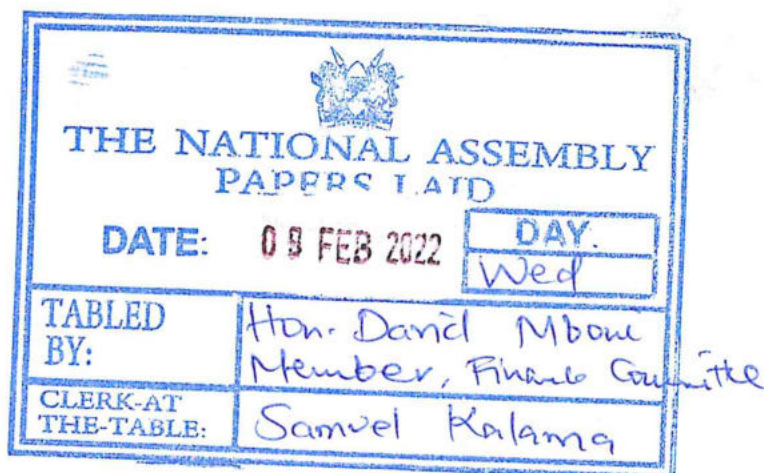 THE NATIONAL ASSEMBLY
PAPERS LAID
DATE: 09 FEB 2022
DAY.
Wed
TABLED BY:
Hon. David Mboni
Member, Finance Committee
CLERK-AT THE-TABLE:
Samuel Kalama